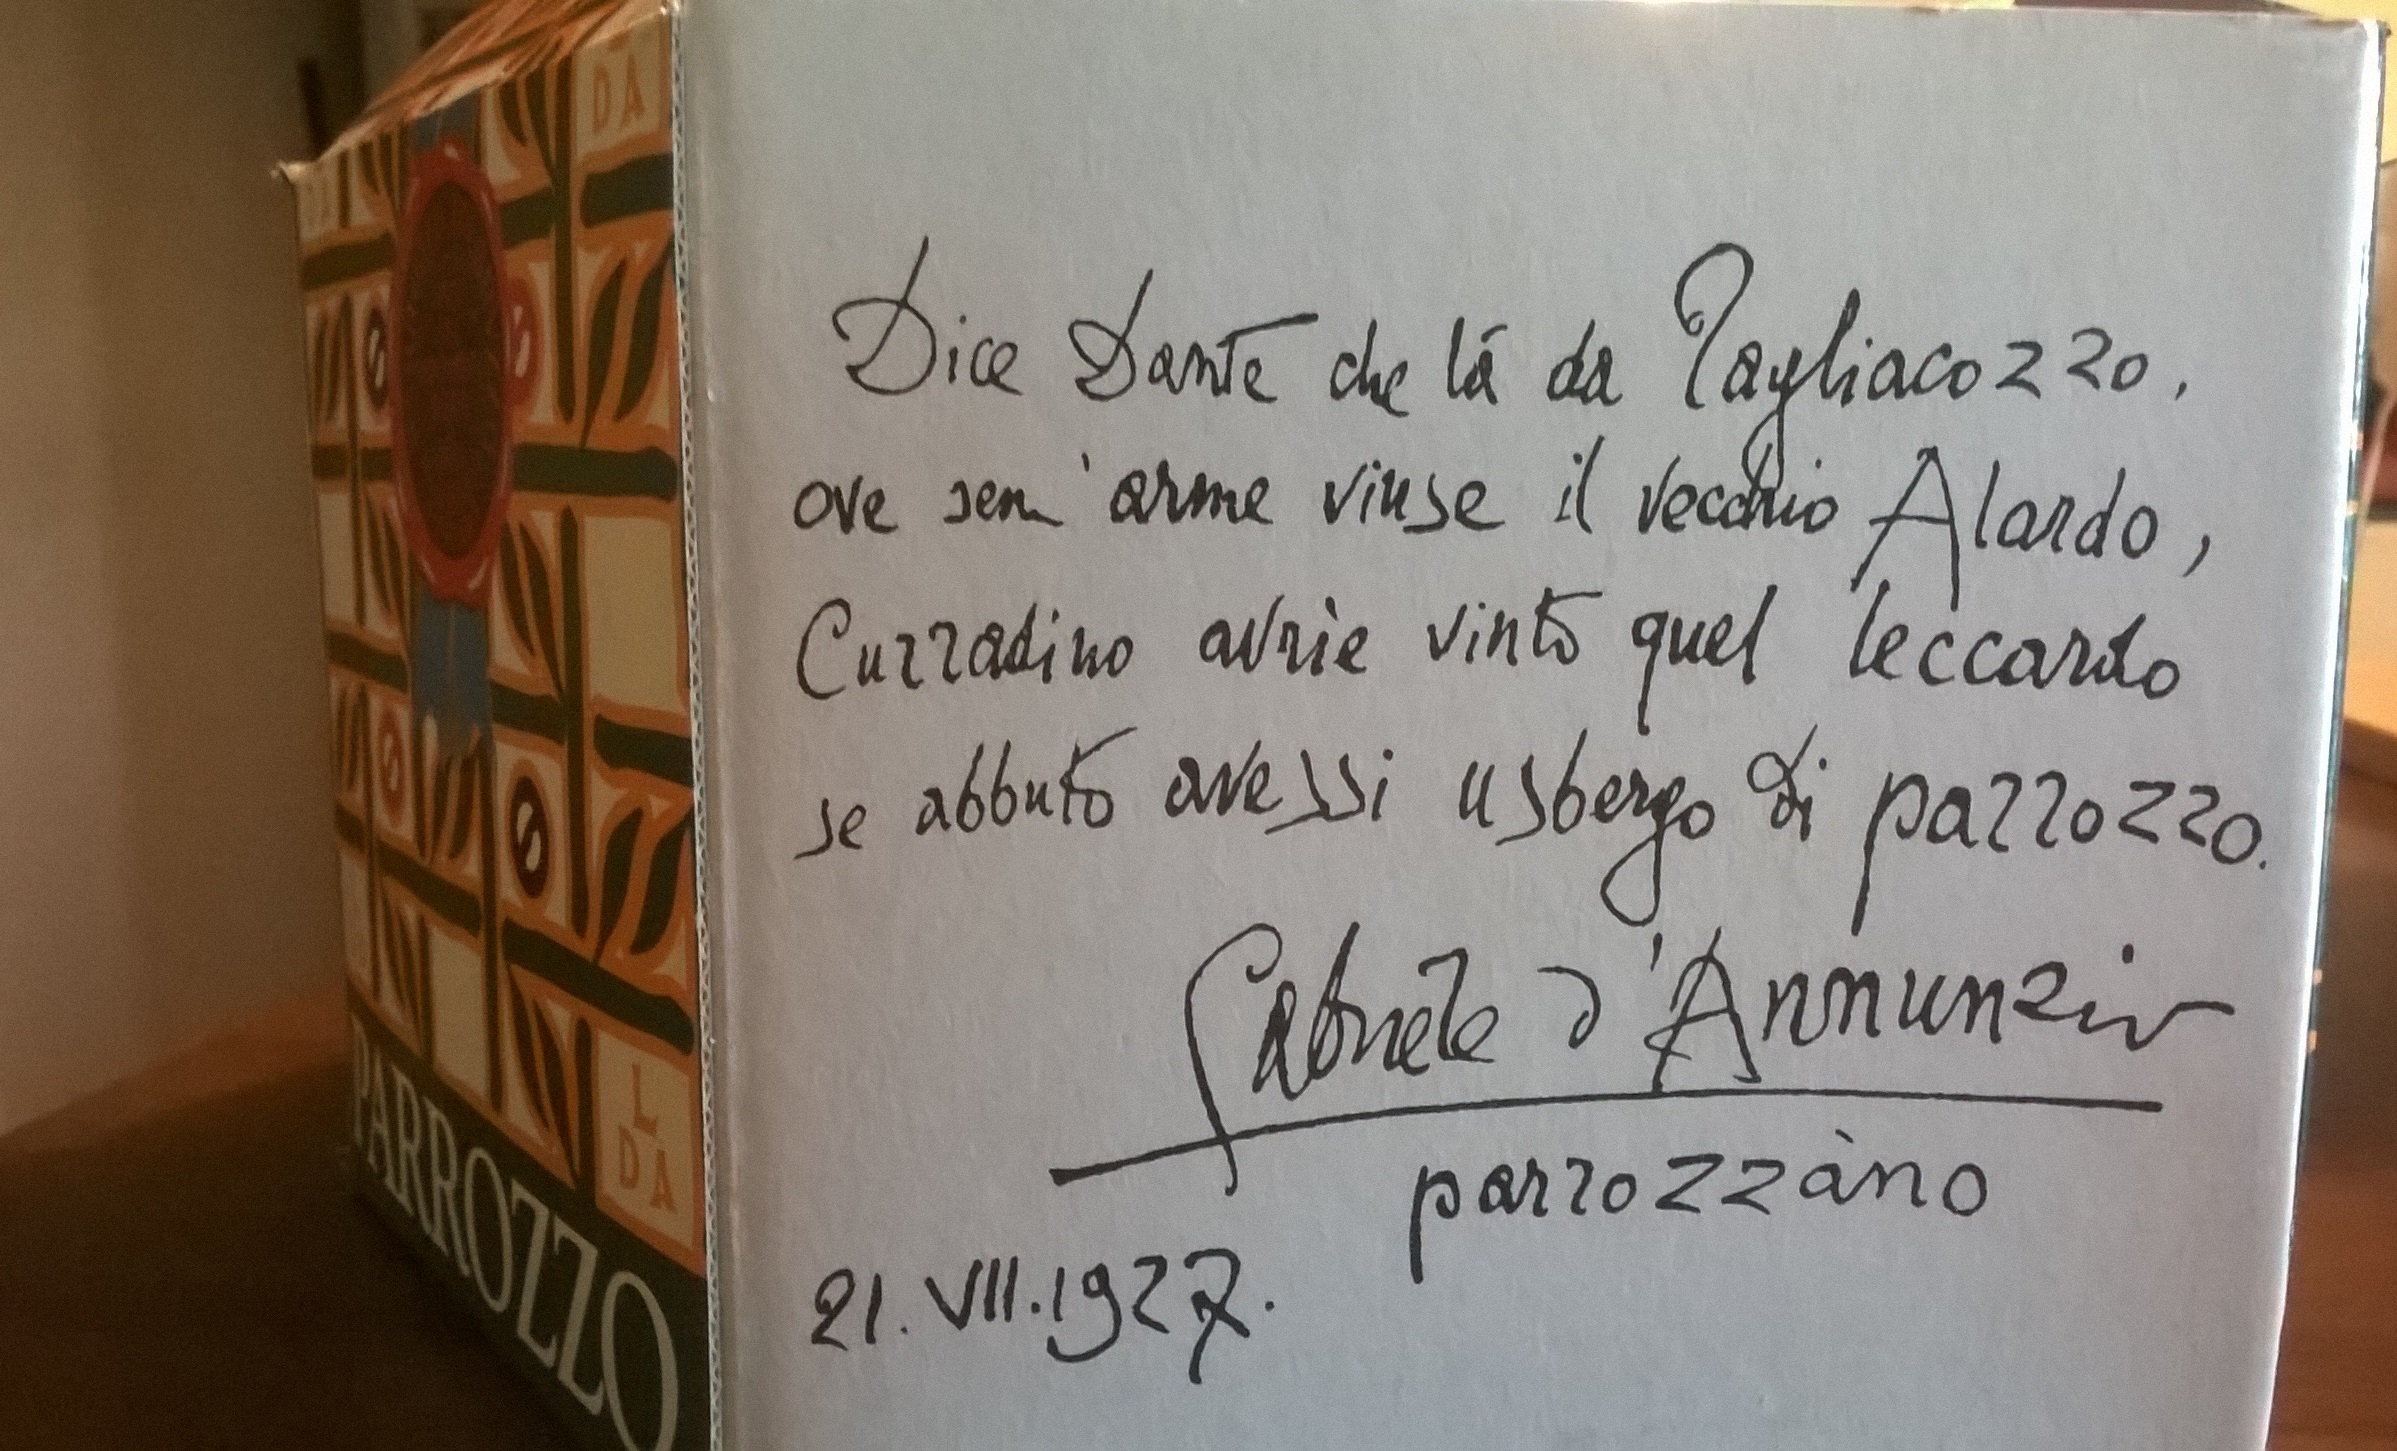 DA
L
DA
PARROZZO
Dice Dante che là da Tagliacozzo,
ove senz'arme vinse il vecchio Alardo,
Curradino avrìe vinto quel leccardo
se abbuto avessi usbergo di parrozzo.
Gabriele d'Annunzio
parrozzàno
21.VII.1927.